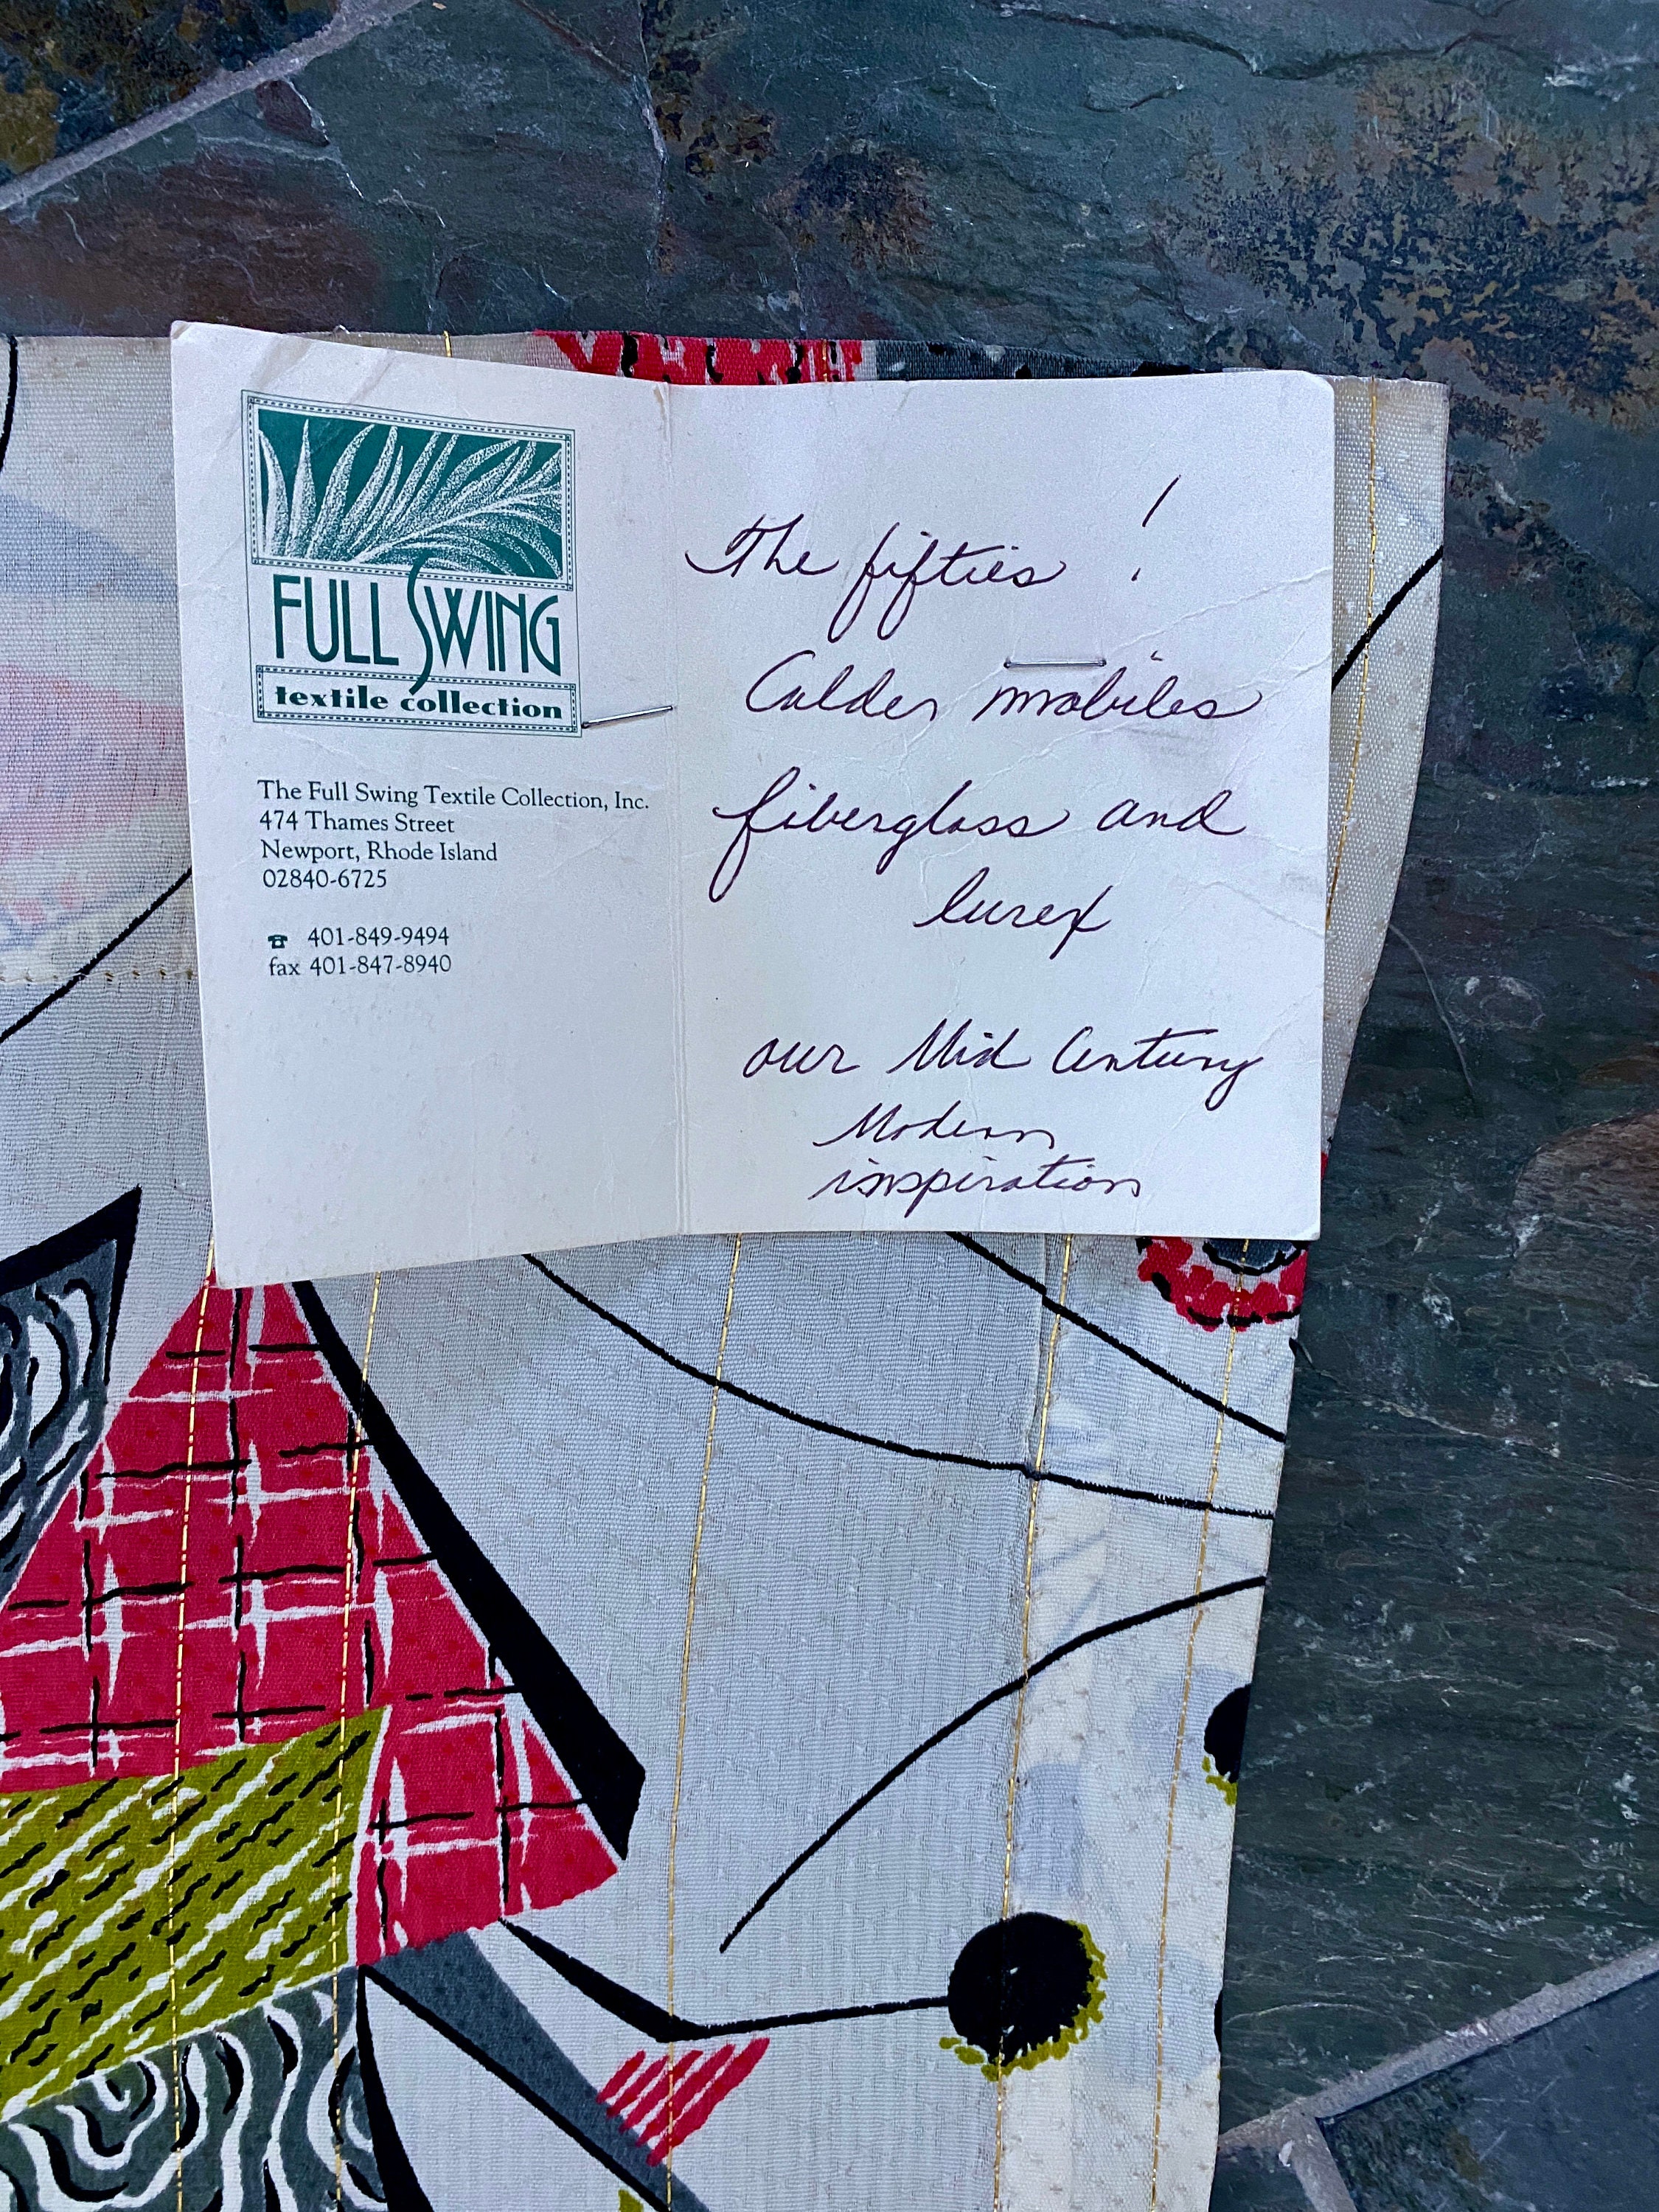 FULL SWING
textile collection
The Full Swing Textile Collection, Inc.
474 Thames Street
Newport, Rhode Island
02840-6725
☎ 401-849-9494
fax 401-847-8940
The fifties !
Calder mobiles
fiberglass and
lurex
our Mid Century
Modern
inspiration